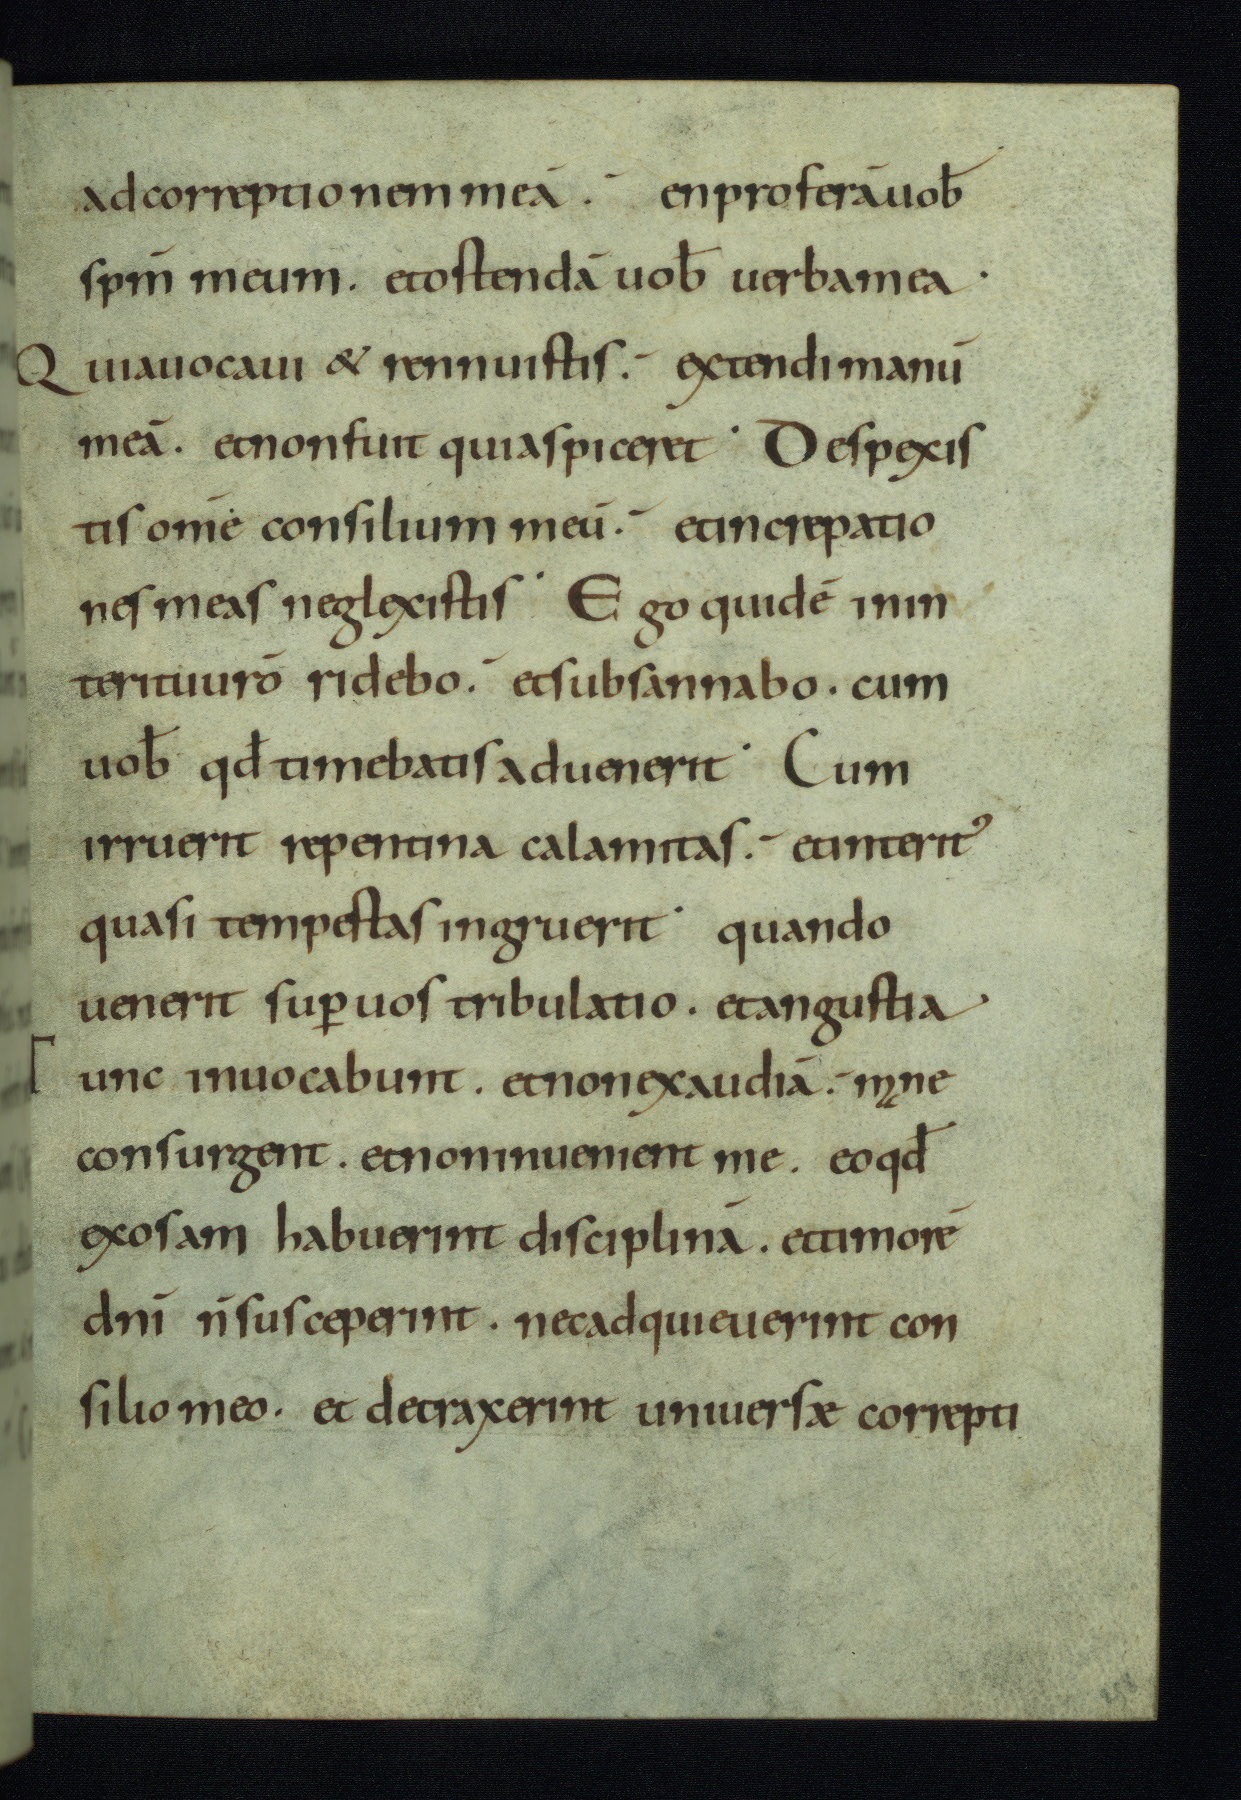 ad correptionem meā. en proferā uob̄
spm̄ meum. et ostendā uob̄ uerba mea.
Quia uocaui & rennuistis. extendi manū
meā. et non fuit qui aspiceret. Despexis
tis om̄e consilium meū. et increpatio
nes meas neglexistis. Ego quidē in in
teritu urō ridebo. et subsannabo. cum
uob̄ qd̄ timebatis aduenerit. Cum
irruerit repentina calamitas. et interitꝰ
quasi tempestas ingruerit. quando
uenerit suꝑ uos tribulatio. et angustia
Tunc inuocabunt. et non exaudiā. mane
consurgent. et non inuenient me. eo qd̄
exosam habuerint disciplinā. et timorē
dn̄i n̄ susceperint. nec adquieuerint con
silio meo. et detraxerint uniuersæ correpti